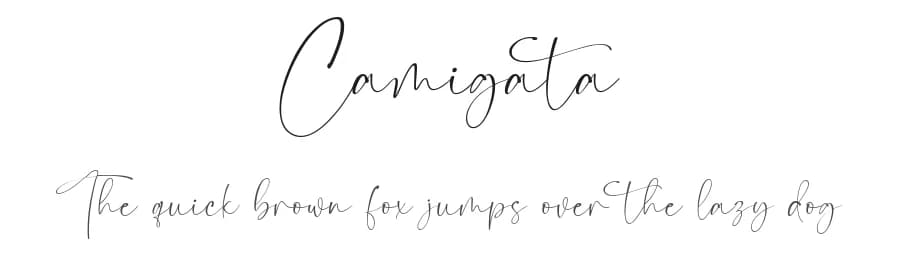 Camigata
The quick brown fox jumps over the lazy dog